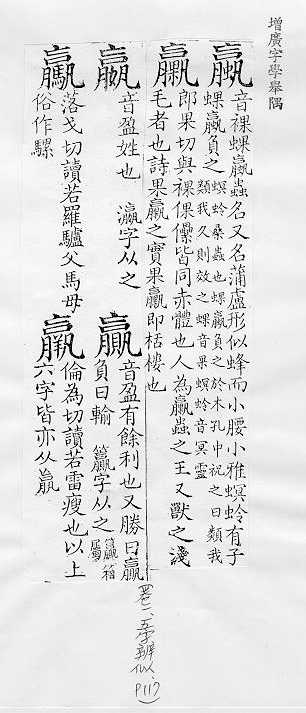 增廣字學舉隅
蠃
音裸蜾蠃蟲名又名蒲盧形似蜂而小腰小雅螟蛉有子
蜾蠃負之
螟蛉桑蟲也蜾蠃負之於木孔中祝之曰類我
類我久則效之蜾音果螟蛉音冥靈
臝
郎果切與裸倮儽皆同赤體也人為臝蟲之王又獸之淺
毛者也詩果臝之實果臝即栝樓也
嬴
音盈姓也 瀛字从之
贏
音盈有餘利也又勝曰贏
負曰輸 籯字从之
籯箱
屬
驘
落戈切讀若羅驢父馬母
俗作騾
羸
倫為切讀若雷瘦也以上
六字皆亦从𣎆
辨似
P117